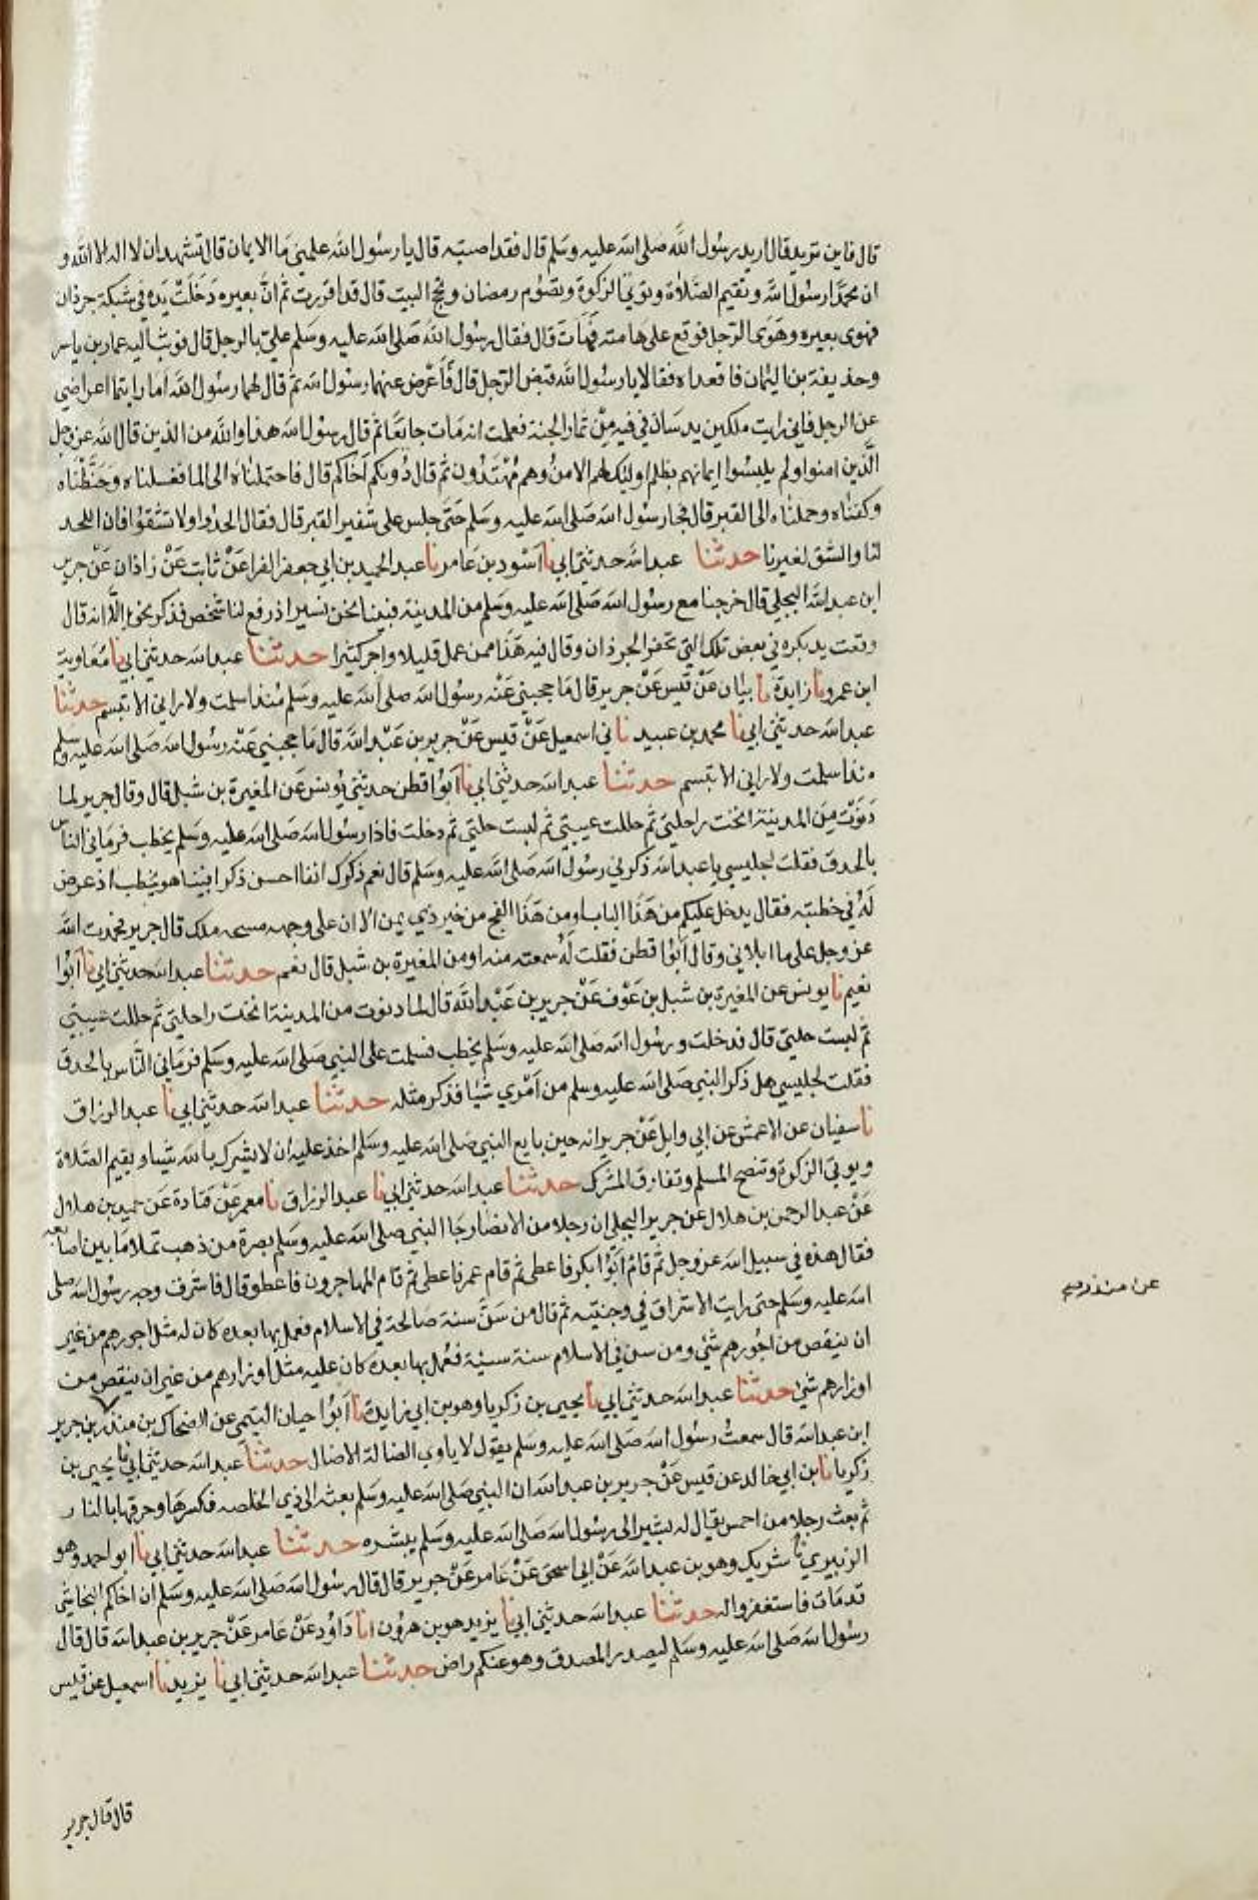 قال فاين تريد قال اريد رسول الله صلى الله عليه وسلم قال فقد اصبته قال يا رسول الله علمني ما الايمان قال تشهد ان لا اله الا الله و
ان محمدا رسول الله وتقيم الصلاة وتوتي الزكوة وتصوم رمضان وتحج البيت قال قد اقررت ثم ان بعيره دخلت يده في شبكة جرذان
فهوى بعيره وهوى الرجل فوقع على هامته فمات قال فقال رسول الله صلى الله عليه وسلم علي بالرجل قال فوثب اليه عمار بن ياسر
وحذيفة بن اليمان فاقعداه فقالا يا رسول الله قبض الرجل قال فاعرض عنهما رسول الله ثم قال لهما رسول الله اما رايتما اعراضي
عن الرجل فاني رايت ملكين يدسان في فيه من ثمار الجنة فعلمت انه مات جائعا ثم قال رسول الله هذا والله من الذين قال الله عز وجل
الذين امنوا ولم يلبسوا ايمانهم بظلم اوليك لهم الامن وهم مهتدون ثم قال دونكم اخاكم قال فاحتملناه الى الما فغسلناه وحنطناه
وكفناه وحملناه الى القبر قال فجا رسول الله صلى الله عليه وسلم حتى جلس على شفير القبر قال فقال الحدوا ولا تشقوا فان اللحد
لنا والشق لغيرنا حدثنا عبد الله حدثني ابي نا اسود بن عامر نا عبد الحميد بن ابي جعفر الفرا عن ثابت عن زاذان عن جرير
ابن عبد الله البجلي قال خرجنا مع رسول الله صلى الله عليه وسلم من المدينة فبينا نحن نسير اذ رفع لنا شخص فذكر نحوه الا انه قال
وقعت يد بكره في بعض تلك التي تحفر الجرذان وقال فيه هذا ممن عمل قليلا واجر كثيرا حدثنا عبد الله حدثني ابي نا معاوية
ابن عمرو نا زايدة نا بيان عن قيس عن جرير قال ما حجبني عنه رسول الله صلى الله عليه وسلم منذ اسلمت ولا راني الا تبسم حدثنا
عبد الله حدثني ابي نا محمد بن عبيد نا اسمعيل عن قيس عن جرير بن عبد الله قال ما حجبني عنه رسول الله صلى الله عليه وسلم
منذ اسلمت ولا راني الا تبسم حدثنا عبد الله حدثني ابي نا ابوا قطن حدثني يونس عن المغيرة بن شبل قال وقال جرير لما
دنوت من المدينة انخت راحلتي ثم حللت عيبتي ثم لبست حلتي ثم دخلت فاذا رسول الله صلى الله عليه وسلم يخطب فرماني الناس
بالحدق فقلت لجليسي يا عبد الله ذكرني رسول الله صلى الله عليه وسلم قال نعم ذكرك انفا احسن ذكر ا فبينا هو يخطب اذ عرض
له في خطبته فقال يدخل عليكم من هذا الباب او من هذا الفج من خير ذي يمن الا ان على وجهه مسحه ملك قال جرير فحمدت الله
عز وجل على ما ابلاني وقال ابوا قطن فقلت له سمعته منه او من المغيرة بن شبل قال نعم حدثنا عبد الله حدثني ابي نا ابوا
نعيم نا يونس عن المغيرة بن شبل بن عوف عن جرير بن عبد الله قال لما دنوت من المدينة انخت راحلتي ثم حللت عيبتي
ثم لبست حلتي قال فدخلت ورسول الله صلى الله عليه وسلم يخطب فسلمت على النبي صلى الله عليه وسلم فرماني الناس بالحدق
فقلت لجليسي هل ذكر النبي صلى الله عليه وسلم من امري شيا فذكر مثله حدثنا عبد الله حدثني ابي نا عبد الرزاق
نا سفيان عن الاعمش عن ابي وايل عن جرير انه حين بايع النبي صلى الله عليه وسلم اخذ عليه ان لا يشرك بالله شيا ويقيم الصلاة
ويوتي الزكوة وتنصح المسلم وتفارق المشرك حدثنا عبد الله حدثني ابي نا عبد الرزاق نا معمر عن قتادة عن حميد بن هلال
عن عبد الرحمن بن هلال عن جرير البجلي ان رجلا من الانصار جا النبي صلى الله عليه وسلم بصرة من ذهب تملا ما بين اصابعه
فقال هذه في سبيل الله عز وجل ثم قام ابوا بكر فاعطى ثم قام عمر فاعطى ثم قام المهاجرون فاعطو قال فاشرف وجه رسول الله صلى
الله عليه وسلم حتى رايت الاشراق في وجنتيه ثم قال من سن سنة صالحة في الاسلام فعمل بها بعده كان له مثل اجورهم من غير
ان ينقص من اجورهم شي ومن سن في الاسلام سنة سيئة فعمل بها بعده كان عليه مثل اوزارهم من غير ان ينقص من
اوزارهم شي حدثنا عبد الله حدثني ابي نا يحيى بن زكريا وهو بن ابي زايدة نا ابوا حيان التيمي عن الضحاك بن منذر بن جرير
ابن عبد الله قال سمعت رسول الله صلى الله عليه وسلم يقول لا ياوي الضالة الا ضال حدثنا عبد الله حدثني ابي نا يحيى بن
زكريا نا ابن ابي خالد عن قيس عن جرير بن عبد الله ان النبي صلى الله عليه وسلم بعثه الى ذي الخلصه فكسرها وحرقها بالنار
ثم بعث رجلا من احمس يقال له بشير الى رسول الله صلى الله عليه وسلم يبشره حدثنا عبد الله حدثني ابي نا ابو احمد وهو
الزبيري نا شريك وهو بن عبد الله عن ابي اسحق عن عامر عن جرير قال قال رسول الله صلى الله عليه وسلم ان اخاكم النجاشي
قد مات فاستغفروا له حدثنا عبد الله حدثني ابي نا يزيد هو بن هرون انا داود عن عامر عن جرير بن عبد الله قال قال
رسول الله صلى الله عليه وسلم ليصدر المصدق وهو عنكم راض حدثنا عبد الله حدثني ابي نا يزيد نا اسمعيل عن قيس
قال قال جرير